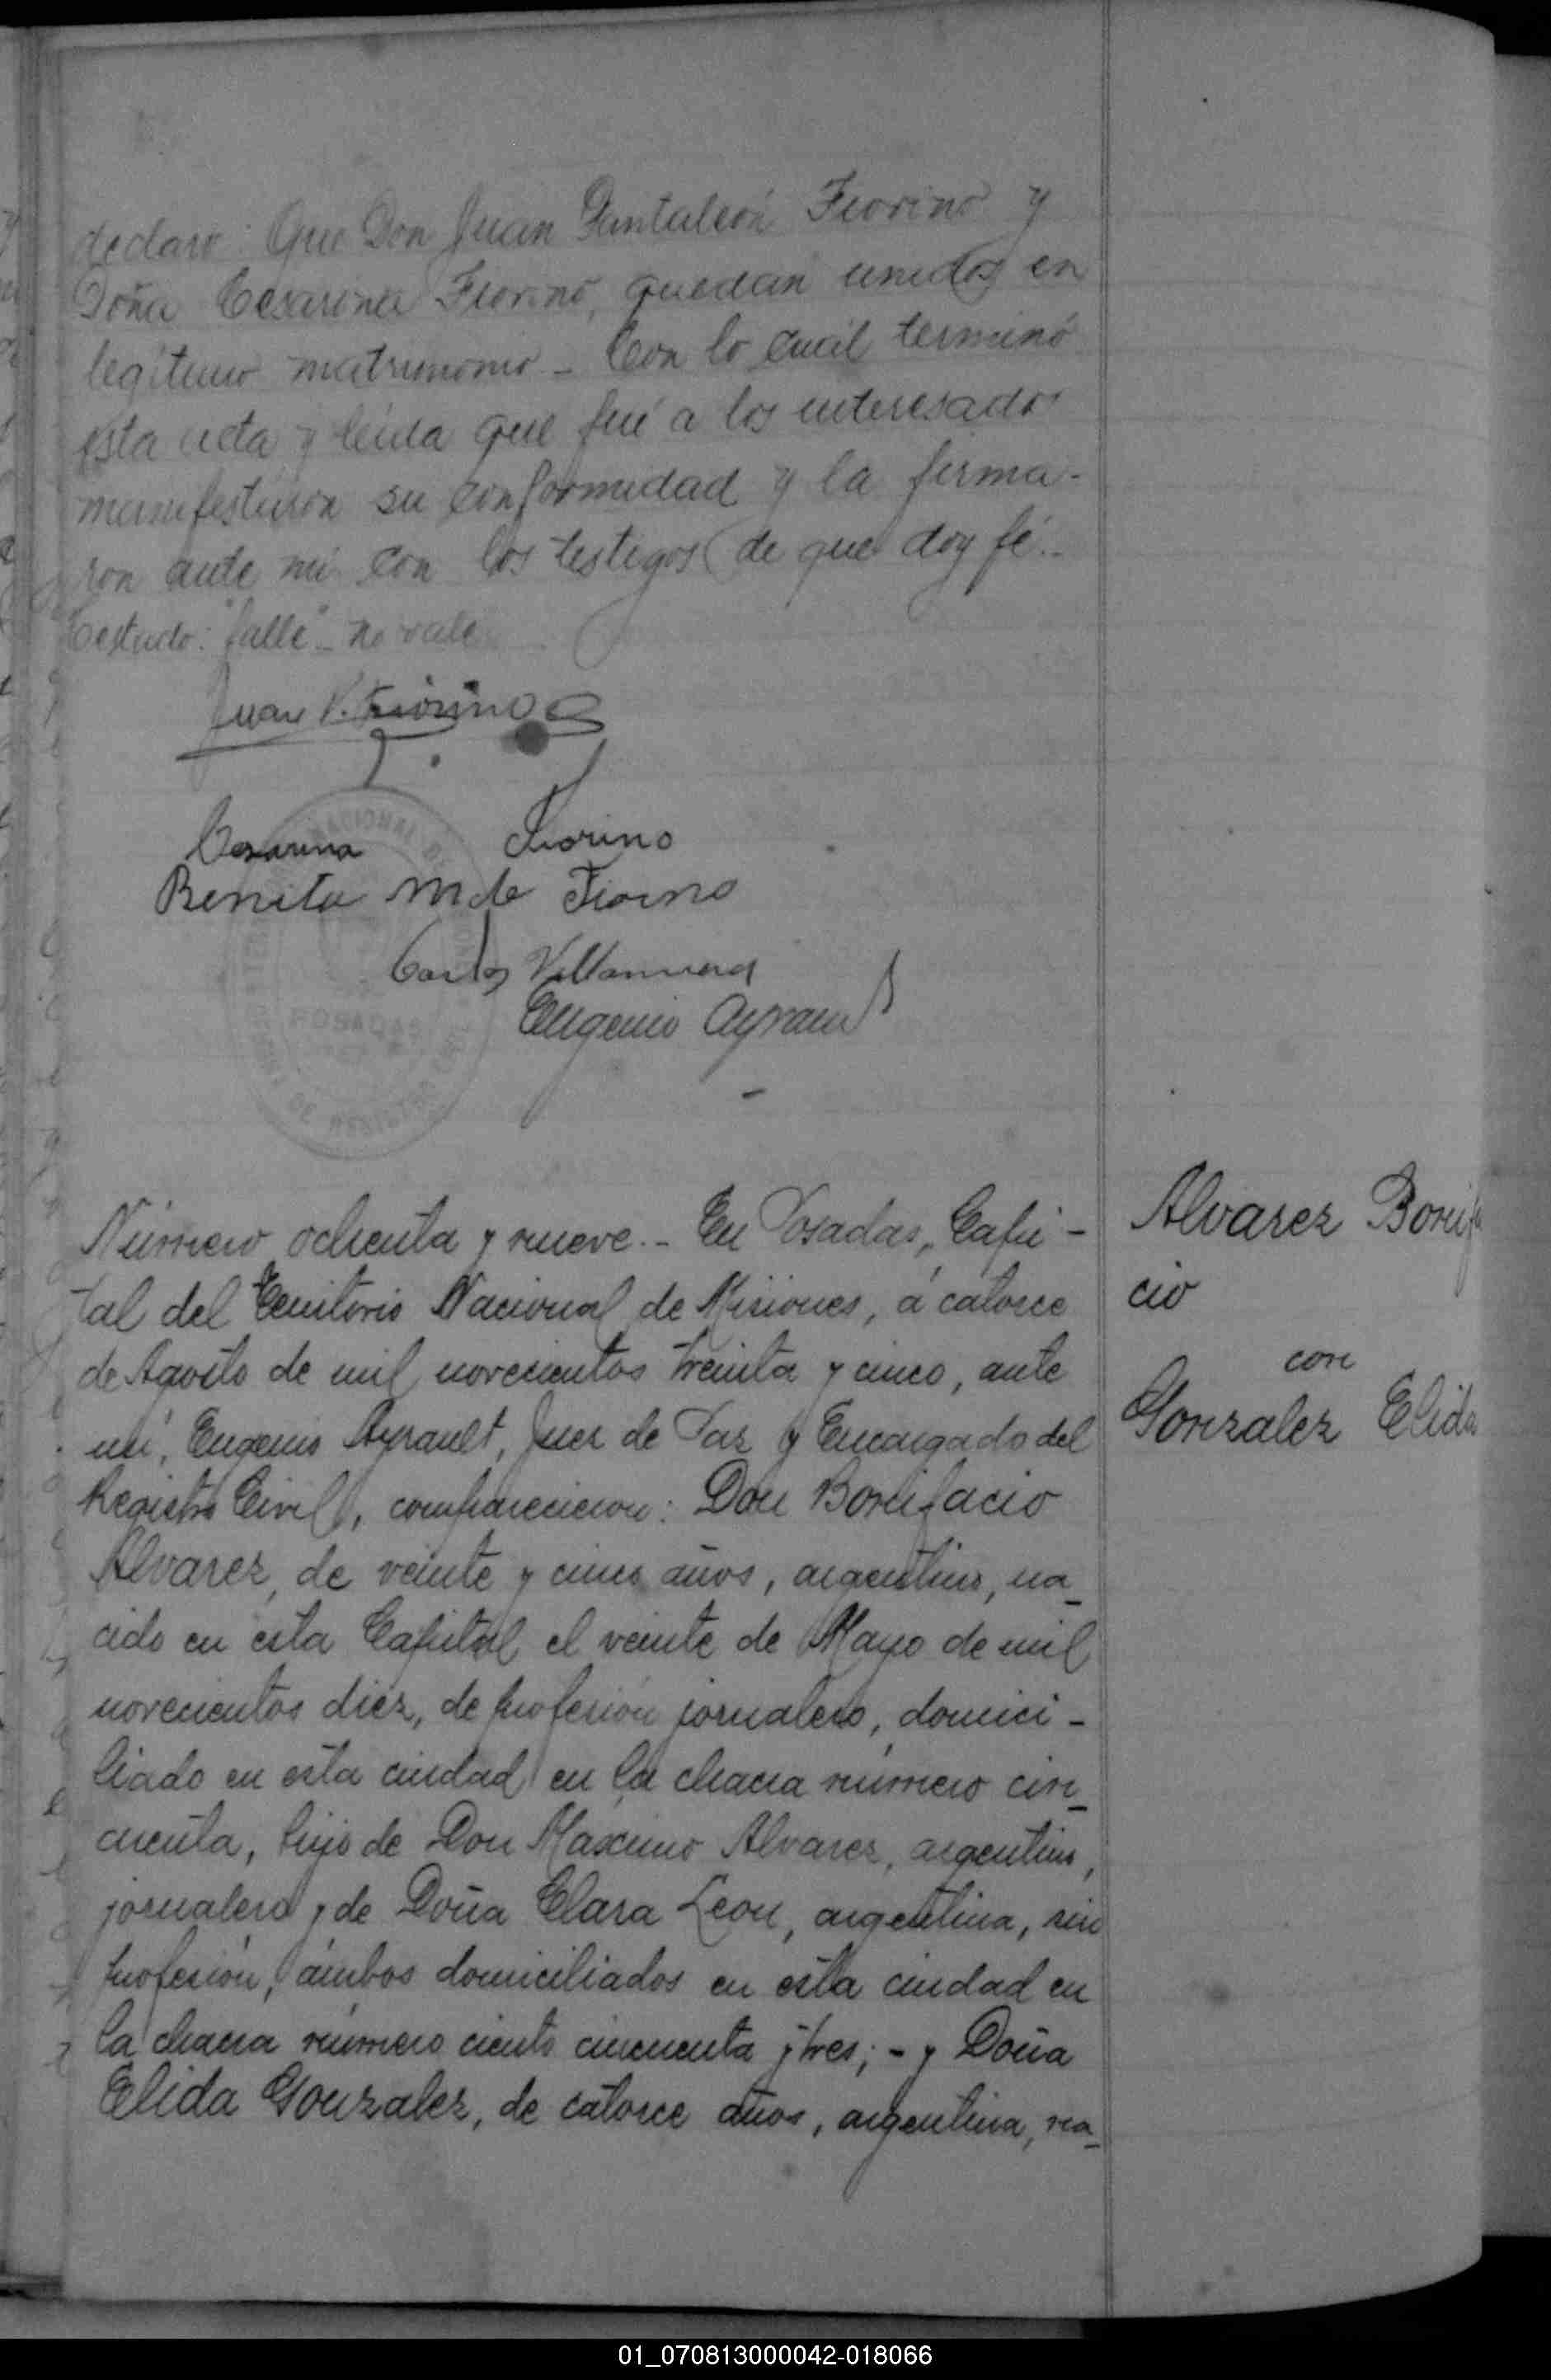 declaro: Que Don Juan Pantaleón Fiorino y
Doña Cesarina Fiorino, quedan unidos en
legítimo matrimonio - Con lo cual terminó
esta acta y leída que fué a los interesados
manifestaron su conformidad y la firma-
ron ante mi con los testigos de que doy fé.-
Testado: "falle" - no vale
Juan P. Fiorino
Cesarina Fiorino
Benita M de Fiorino
Carlos Villanueva
Eugenio Ayrault
NACIONAL DE
POSADAS
DE REGISTRO
Número ochenta y nueve.- En Posadas, Capi-
tal del Territorio Nacional de Misiones, á catorce
de Agosto de mil novecientos treinta y cinco, ante
mí, Eugenio Ayrault, Juez de Paz y Encargado del
Registro Civil, comparecieron: Don Bonifacio
Alvarez, de veinte y cinco años, argentino, na-
cido en esta Capital el veinte de Mayo de mil
novecientos diez, de profesión jornalero, domici-
liado en esta ciudad en la chacra número cin-
cuenta, hijo de Don Maximo Alvarez, argentino,
jornalero y de Doña Clara Leon, argentina, sin
profesión, ámbos domiciliados en esta ciudad en
la chacra número ciento cincuenta y tres; - y Doña
Elida Gonzalez, de catorce años, argentina, na-
Alvarez Bonifa
cio
con
Gonzalez Elida
01_070813000042-018066